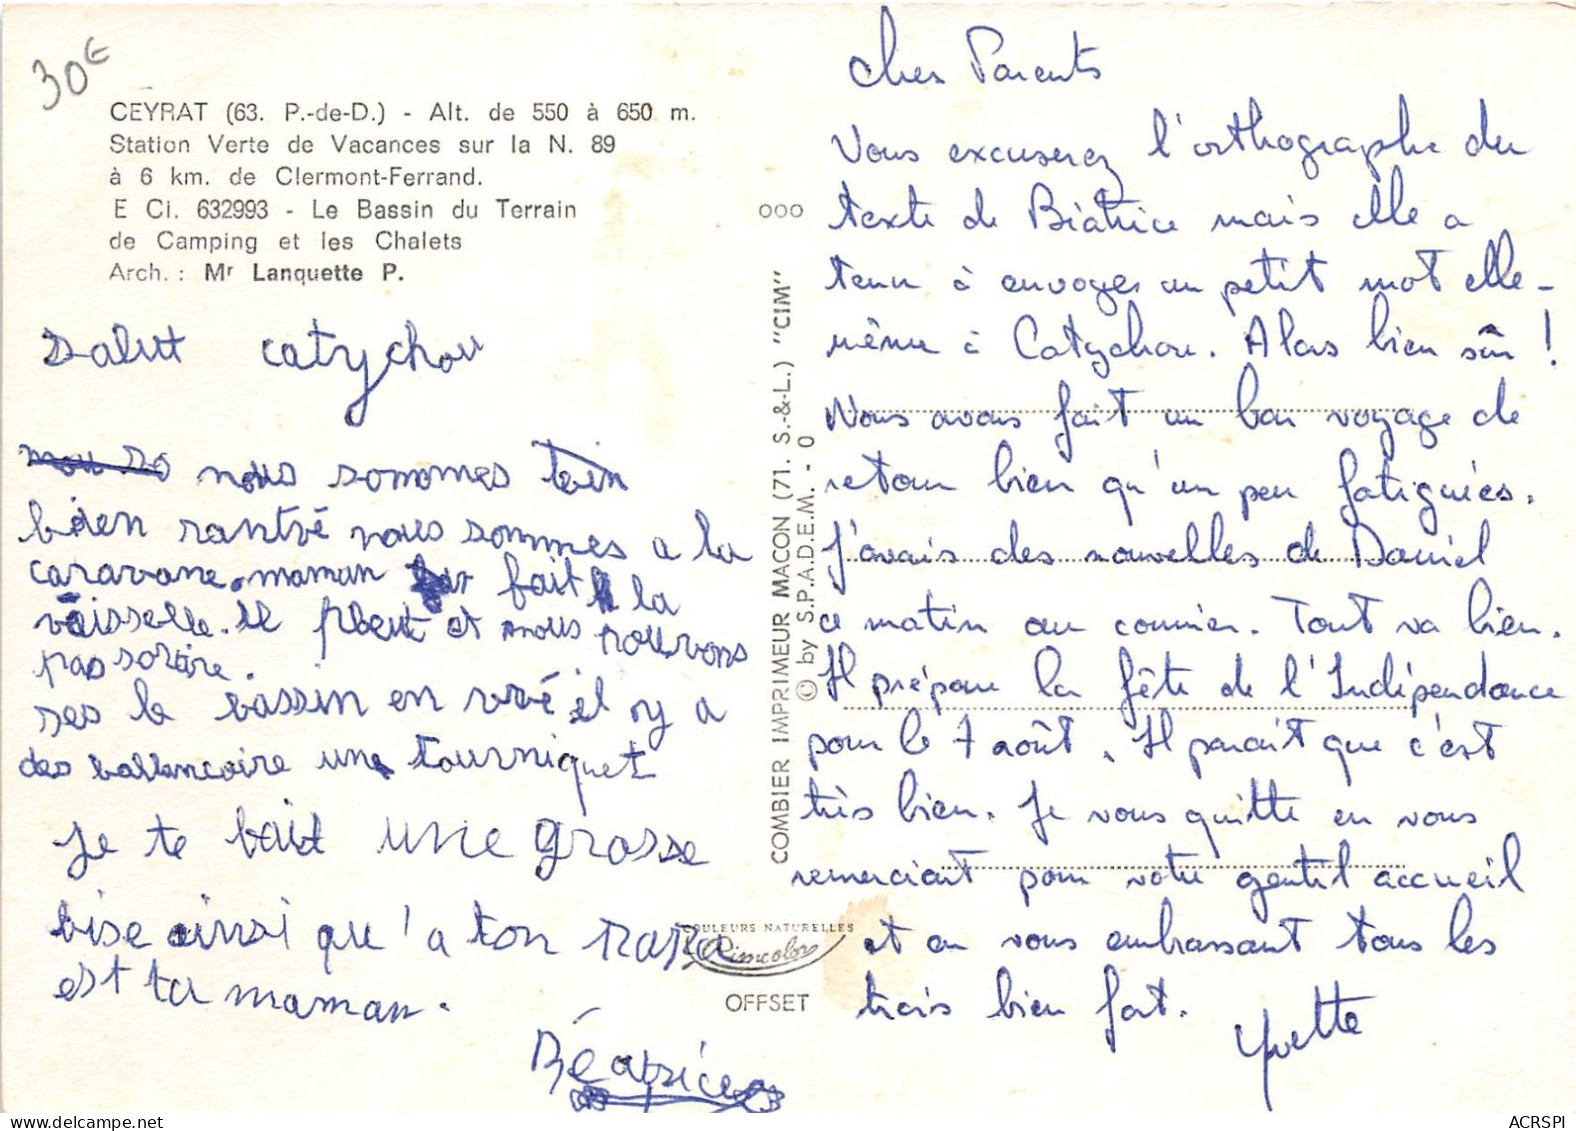 30€
CEYRAT (63. P.-de-D.) - Alt. de 550 à 650 m.
Station Verte de Vacances sur la N. 89
à 6 km. de Clermont-Ferrand.
E Ci. 632993 - Le Bassin du Terrain
de Camping et les Chalets
Arch. : Mr Lanquette P.
salut catychou
nous sommes
bien rantré nous sommes a la
caravane. maman fait la
vaisselle. il pleut et nous pouvons
pas sortire.
le bassin en vivé il y a
des ballancoire une tourniquet
je te fait une grosse
bise ainsi qu'a ton papa
est ta maman.
Béatrice
ooo
COMBIER IMPRIMEUR MACON (71. S.-&-L.) "CIM"
© by S.P.A.D.E.M. - 0
COULEURS NATURELLES
Cimcolor
OFFSET
Chers Parents
Vous excuserez l'orthographe du
texte de Béatrice mais elle a
tenu à envoyer un petit mot elle-
même à Catychou. Alors bien sûr !
Nous avons fait un bon voyage de
retour bien qu'un peu fatiguées.
J'avais des nouvelles de Daniel
ce matin au courrier. Tout va bien.
Il prépare la fête de l'Indépendance
pour le 7 août. Il parait que c'est
très bien. Je vous quitte en vous
remerciant pour votre gentil accueil
et en vous embrassant tous les
trois bien fort.
Yvette
ACRSPI